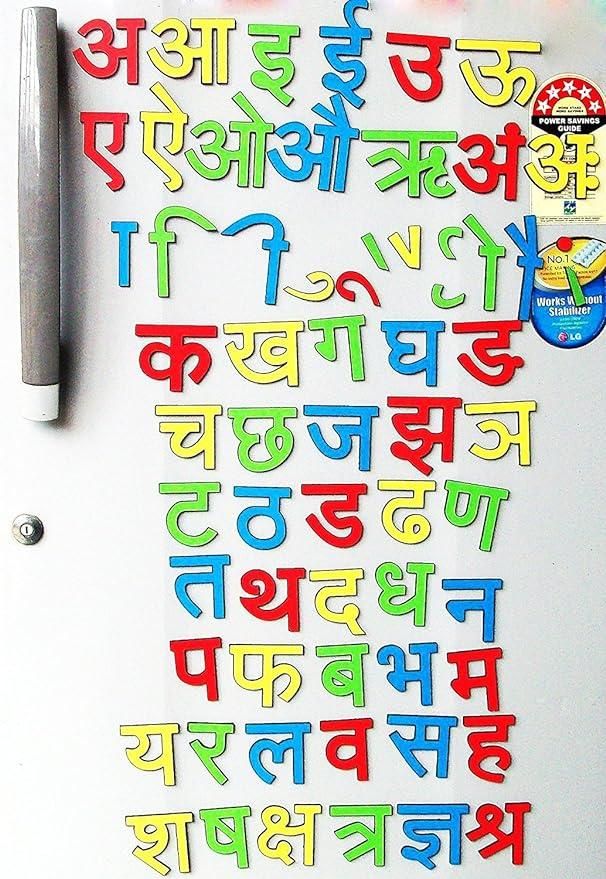 अ आ इ ई उ ऊ
POWER SAVINGS
GUIDE
ए ऐ ओ औ ऋ अं अः
ा ि ी
No.1
Works Without
Stabilizer
LG
क ख ग घ ड
च छ ज झ ञ
ट ठ ड ढ ण
त थ द ध न
प फ ब भ म
य र ल व स ह
श ष क्ष त्र ज्ञ श्र